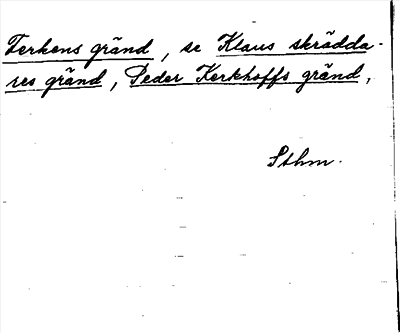 Terkens gränd, se Klaus skrädda-
res gränd, Peder Kerkhoffs gränd,
Sthm.